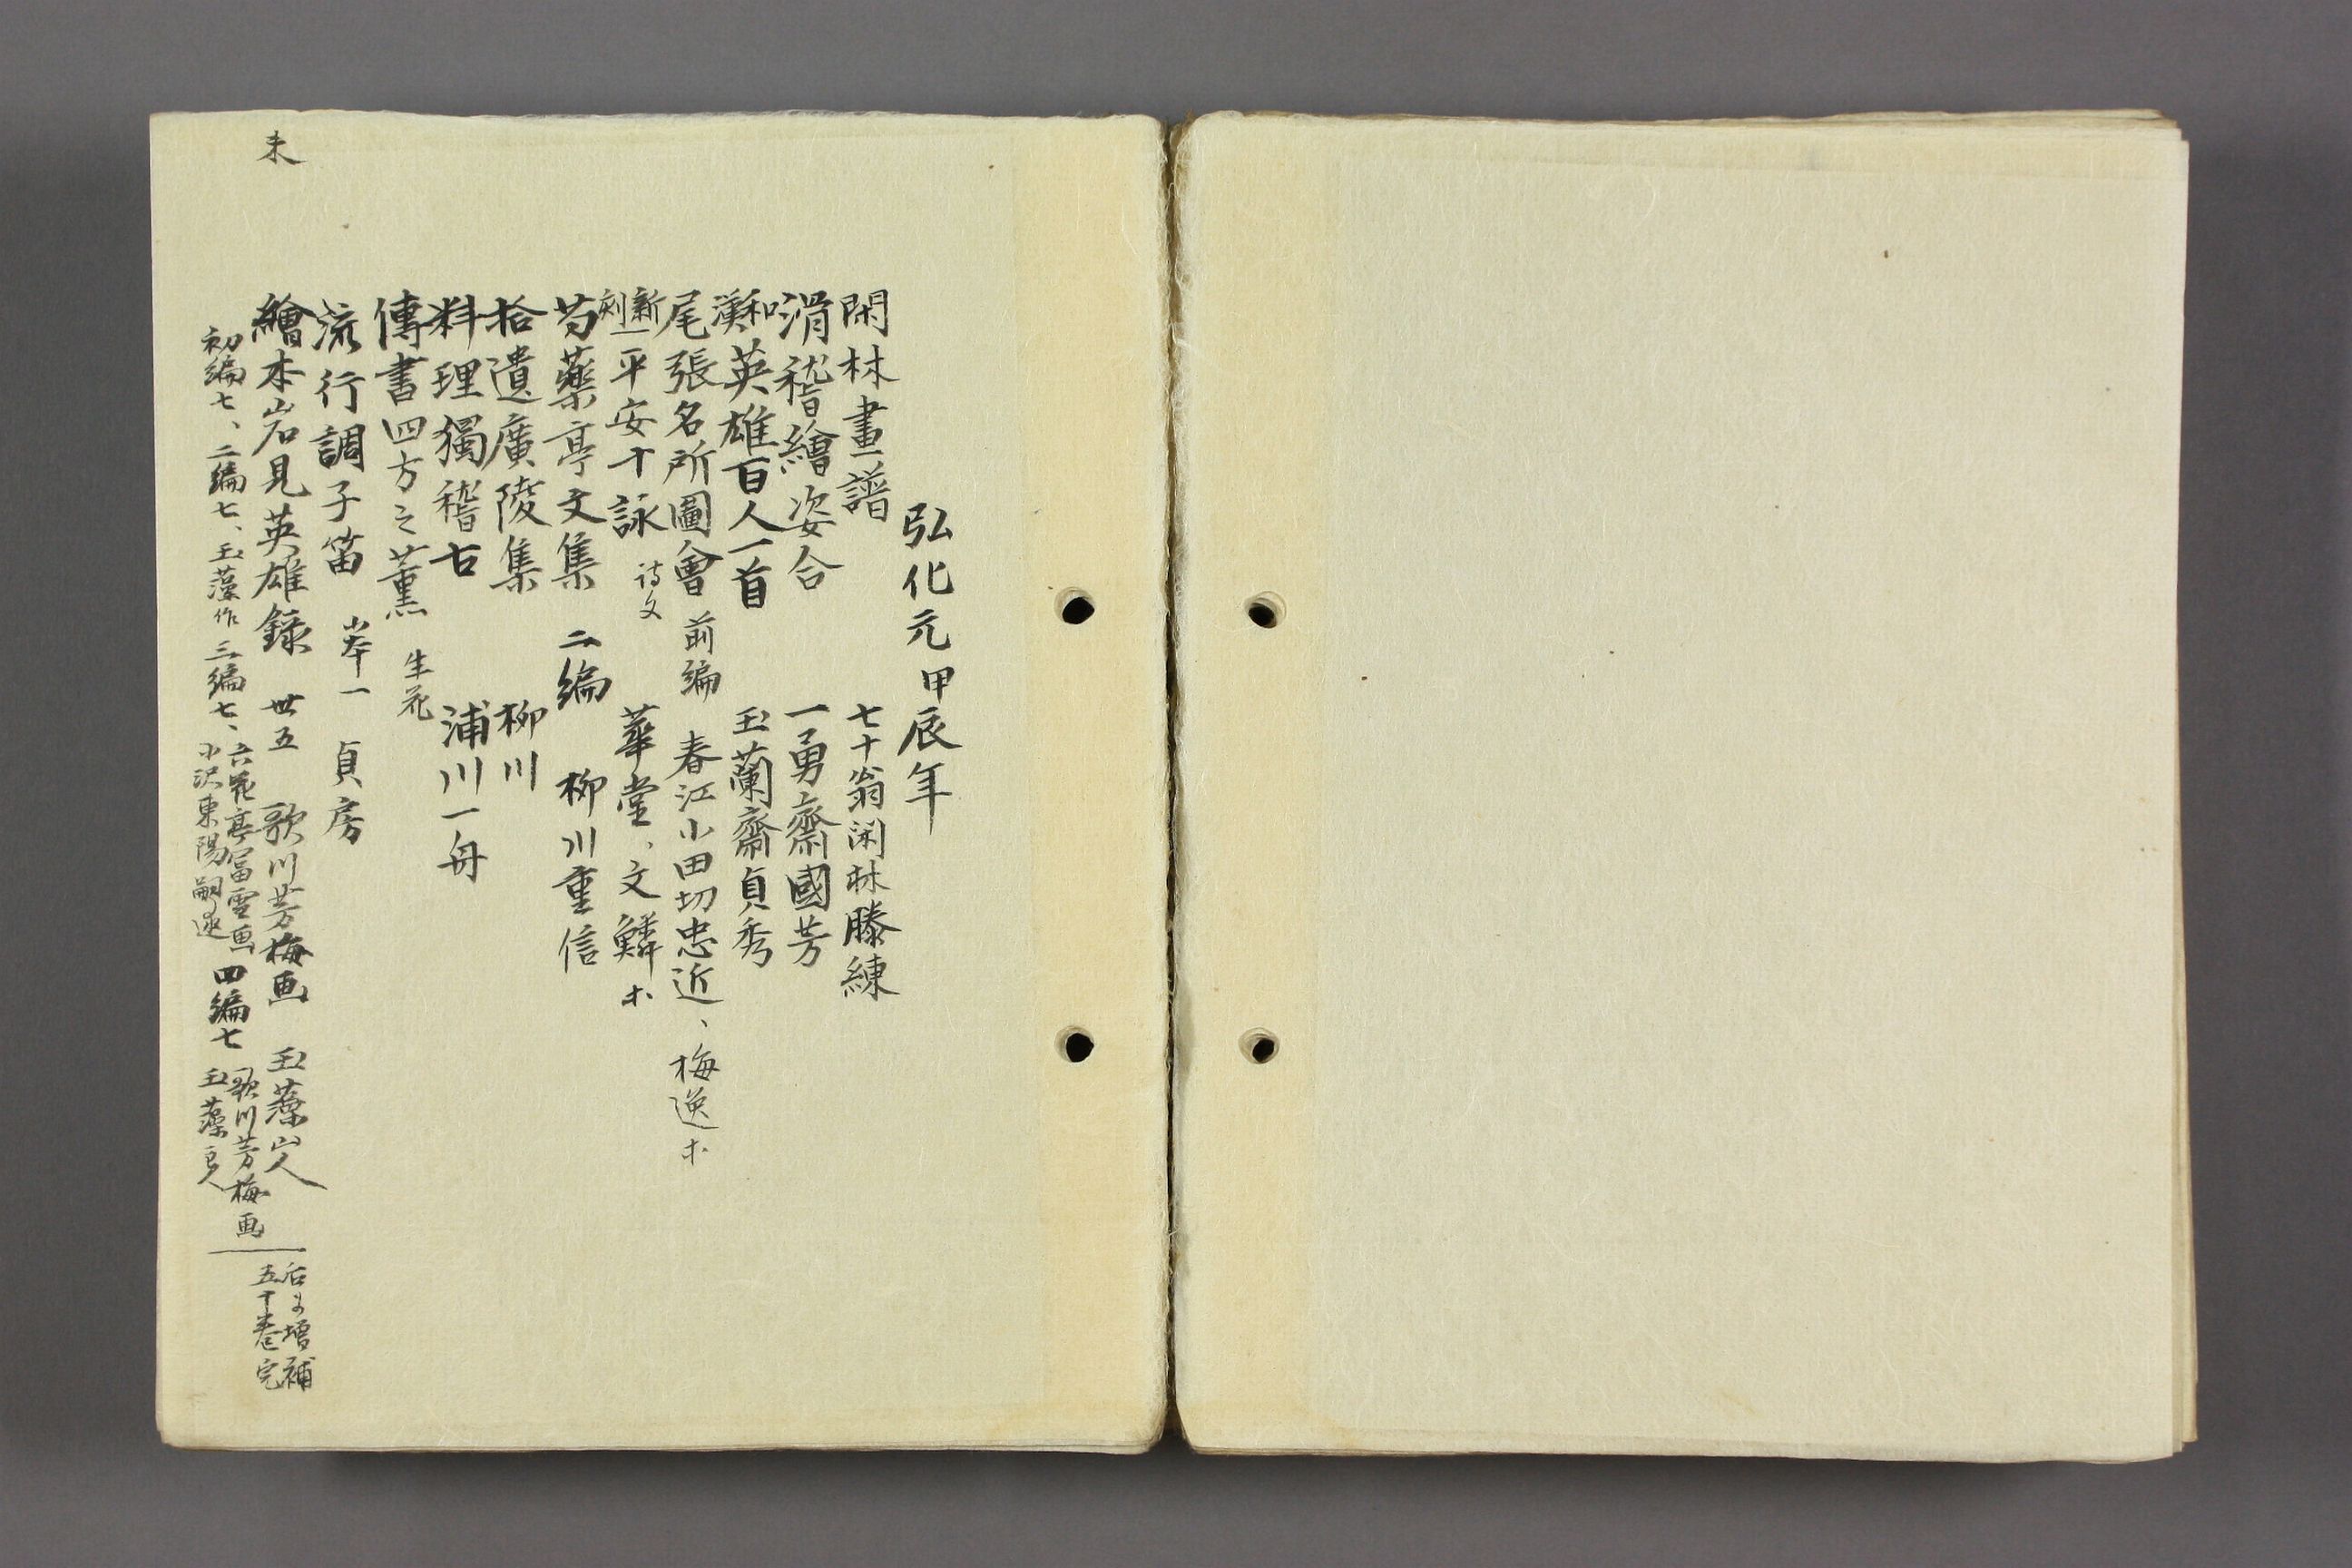 弘化元甲辰年
閑林畫譜 七十翁閑林滕練
滑稽繪姿合 一勇齋國芳
和漢英雄百人一首 玉蘭齋貞秀
尾張名所圖會 前編 春江小田切忠近、梅逸ホ
新刻平安十詠 詩文 華堂、文鱗ホ
芍藥亭文集 二編 柳川重信
拾遺廣陵集 柳川
料理獨稽古 浦川一舟
傳書四方之薫 生花
流行調子笛 半一 貞房
未
繪本岩見英雄録 卅五 歌川芳梅画 玉藻山人
初編七、二編七、玉藻作 三編七、六花亭冨雪画 小沢東陽嗣述 四編七 歌川芳梅画 玉藻山人
后ニ増補
五十巻完